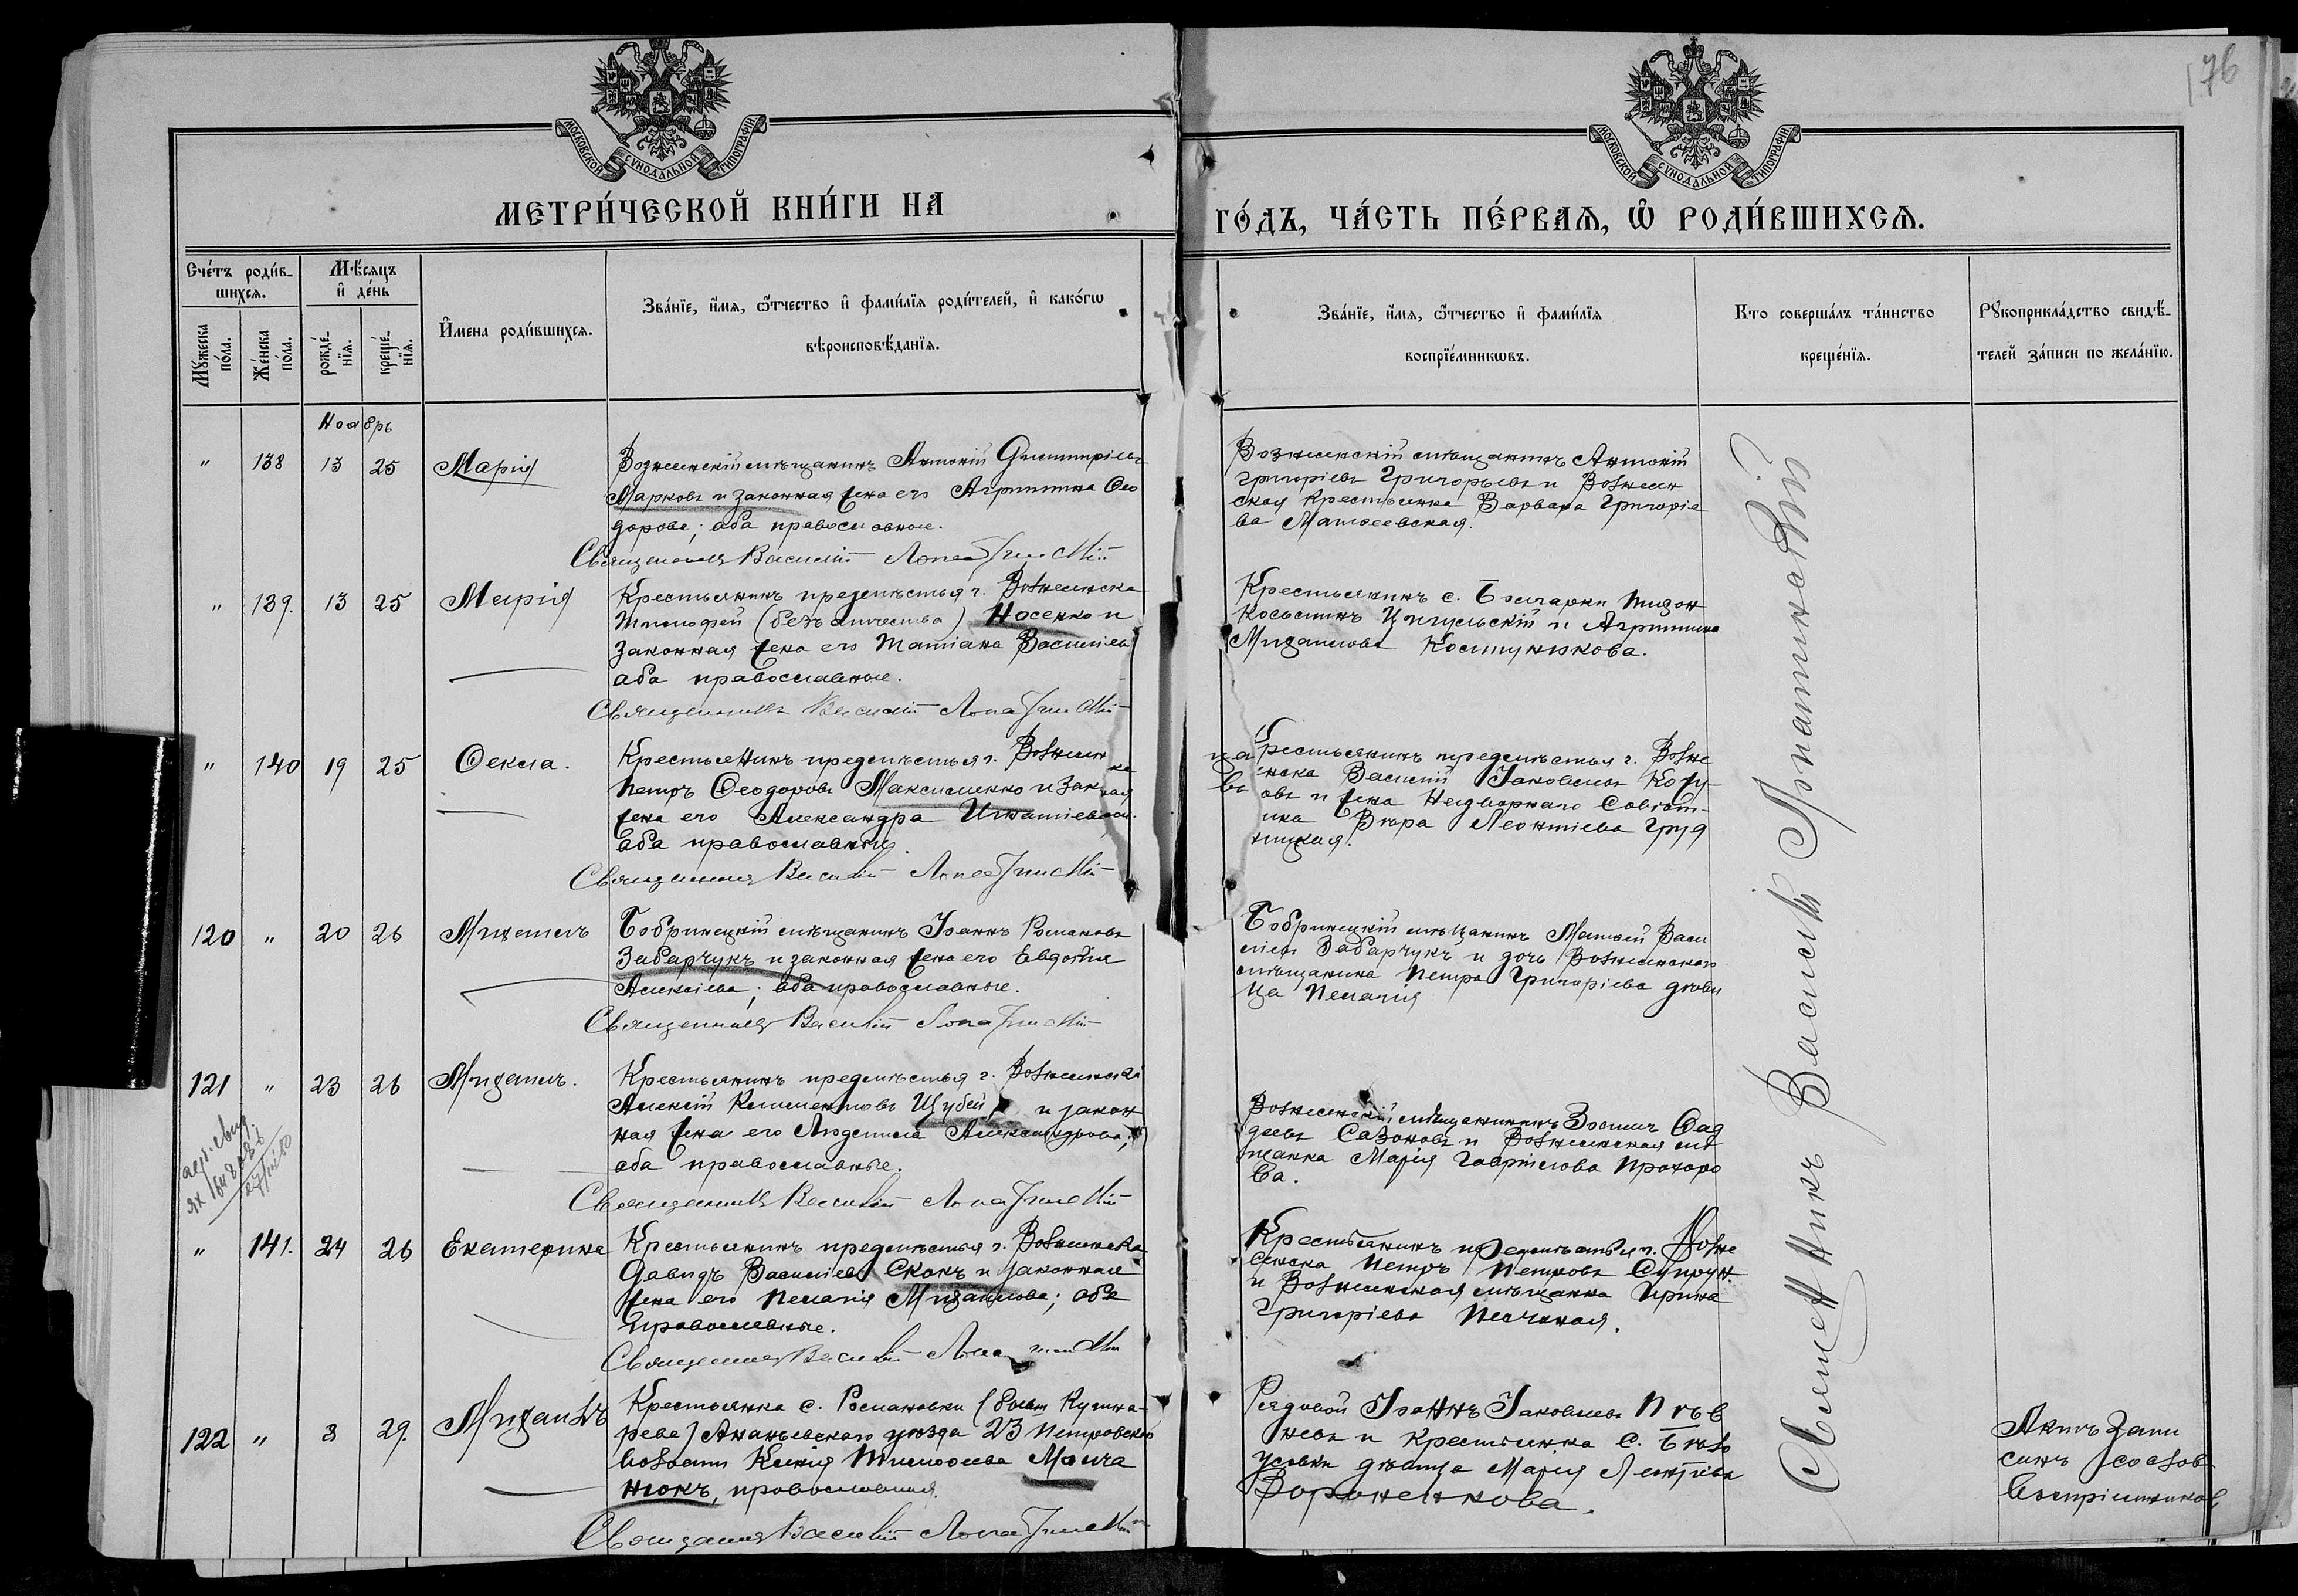 176
МОСКОВСКОЙ СѴНОДАЛЬНОЙ ТИПОГРАФІИ
МОСКОВСКОЙ СѴНОДАЛЬНОЙ ТИПОГРАФІИ
МЕТРИ́ЧЕСКОЙ КНИ́ГИ НА
ГО́ДЪ, ЧА́СТЬ ПЕ́РВАЯ, Ѡ РОДИ́ВШИХСЯ.
Сче́тъ роди́в-
шихся.
Мѣ́сяцъ
и де́нь
Мꙋ́жеска
по́ла.
Же́нска
по́ла.
рожде́-
нїя.
креще́-
нїя.
И҆мена роди́вшихся.
Зва́нїе, и҆́мя, ѻ҆́тчество и҆ фами́лїя роди́телей, и҆ како́гѡ
вѣроисповѣ́данїя.
Зва́нїе, и҆́мя, ѻ҆́тчество и҆ фами́лїя
воспрїе́мникѡвъ.
Кто соверша́лъ та́инство
креще́нїя.
Рꙋкоприкла́дство свидѣ́-
телей за́писи по жела́нїю.
Ноябрь
" 138 13 25 Марія
Вознесенскій мѣщанинъ Антоній Димитріевъ
Марковъ и законная жена его Агриппина Ѳео
дорова; оба православные.
Священникъ Василій Лопатинскій
Вознесенскій мѣщанинъ Антоній
Григоріевъ Григорьевъ и Вознесен
ская крестьянка Варвара Григоріе
ва Матѳеевская.
" 139. 13 25 Марія
Крестьянинъ предмѣстья г. Вознесенска
Тимофей (безъ отчества) Носенко и
законная жена его Татіана Васильев
оба православные.
Священникъ Василій Лопатинскій
Крестьянинъ с. Болгарки Тихон
Косьминъ и Агриппина
Михаилова Костунокова.
" 140 19 25 Ѳекла.
Крестьянинъ предмѣстья г. Вознесен
Петръ Ѳеодоровъ Максименко и закная
жена его Александра Игнатіева
оба православные.
Священникъ Василій Лопатинскій
Крестьянинъ предмѣстья г. Возне
сенска Василій Іаковлевъ
и жена Надворнаго Совѣт-
ника Вѣра Леонтіева Груд
ницкая.
120 " 20 26 Михаилъ
Бобринецкій мѣщанинъ Іоаннъ Романовъ
Забарчукъ и законная жена его Евдокія
Алексіева; оба православные.
Священникъ Василій Лопатинскій
Бобринецкій мѣщанинъ Матѳей Васи
ліевъ Забарчукъ и дочь Вознесенскаго
мѣщанина Петра Григоріева дѣвин
ца Пелагія
121 " 23 26 Михаилъ.
Крестьянинъ предмѣстья г. Вознесенска
Алексій Климентовъ Щубей и закон
ная жена его Людмила Александрова;
оба православные.
Священникъ Василій Лопатинскій
Вознесенскій мѣщанинъ Зосима Ѳад
деевъ Сазоновъ и Вознесенская мѣ
щанка Марія Гавріилова Прохоро
ва.
" 141. 24 26 Екатерина
Крестьянинъ предмѣстья г. Вознесенска
Давидъ Василіевъ Скокъ и законная
жена его Пелагія Михаилова; оба
православные.
Священникъ Василій Лопатинскій
Крестьянинъ предмѣстья г. Возне
сенска Петръ Петровъ Супрун
и Вознесенская мѣщанка Ирина
Григоріева Песчаная.
122 " 3 29. Михаилъ
Крестьянка с. Романовки (бывш Кушна-
рева) Ананьевскаго уѣзда 23 Петровской
волости Ксенія Тимоѳеева Молча
нюкъ, православная.
Священникъ Василій Лопатинскій
Рядовой Іоаннъ Іаковлевъ Пѣв
невъ и крестьянка с. Бѣло
усовки дѣвица Марія Леонтіева
Вороненкова.
Священникъ Василій Лопатинскій
Актъ запи
санъ со слов
воспріемников